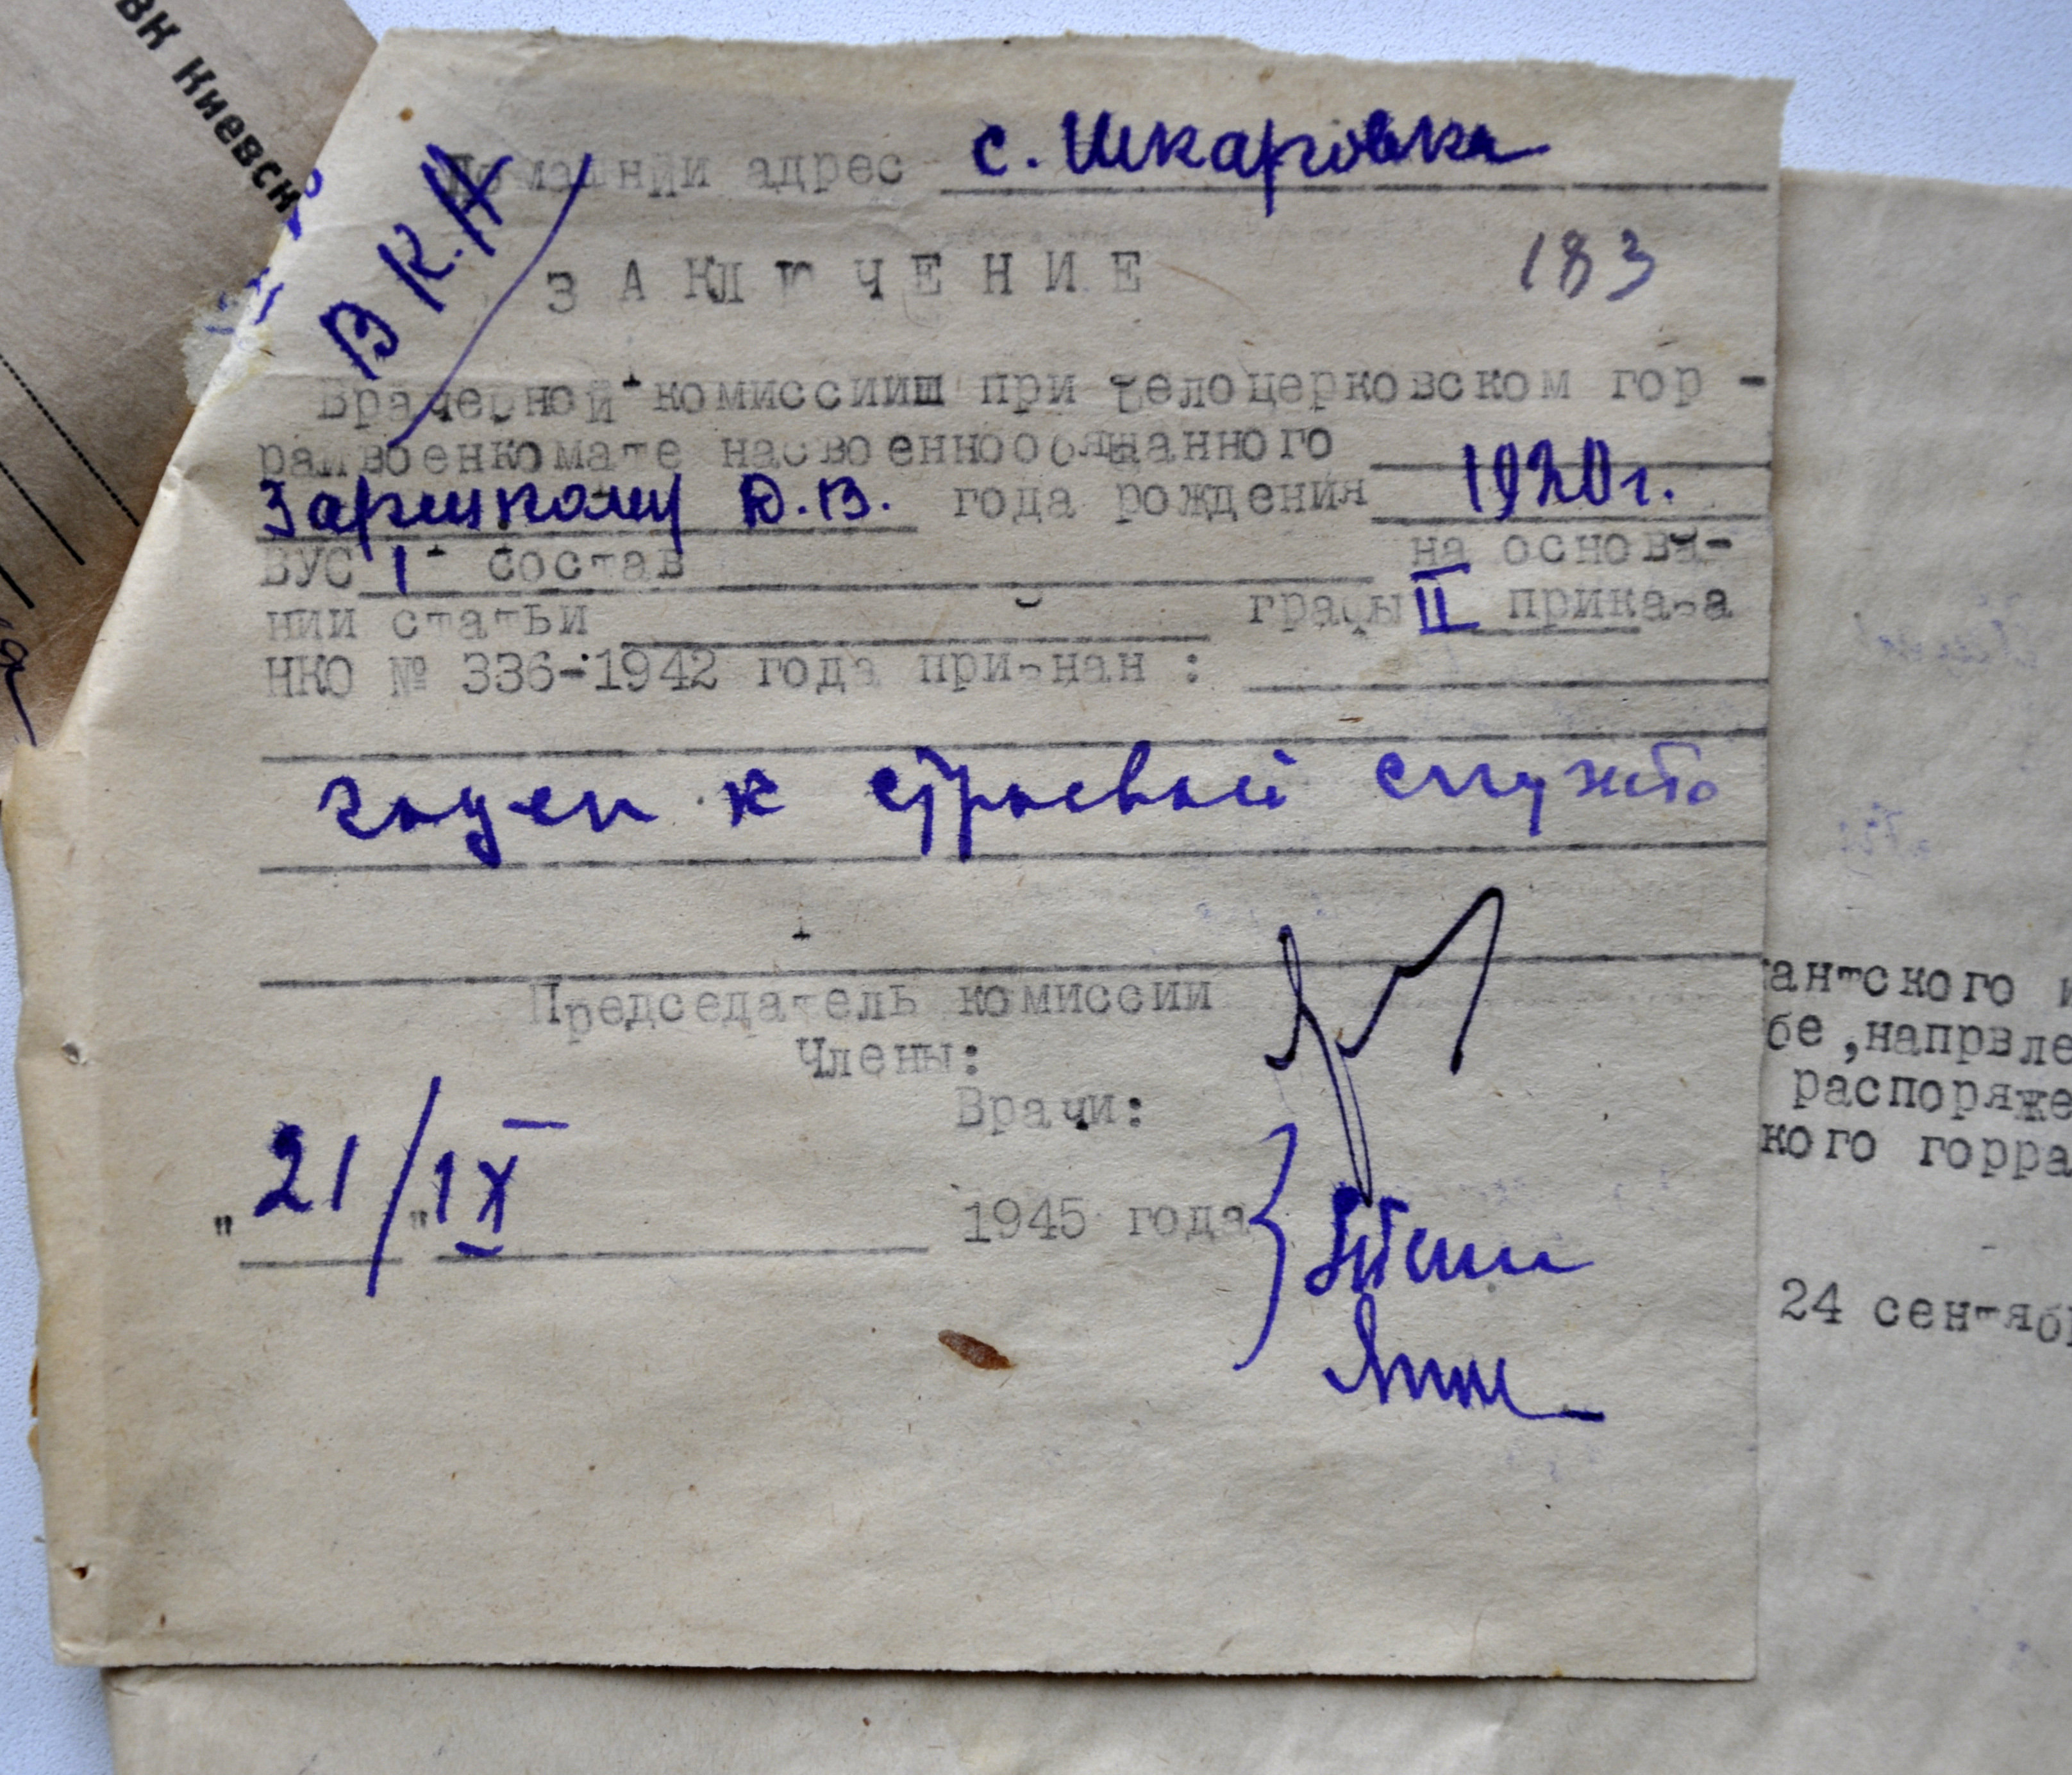 ВК Киевск
Домашний адрес с. Шкаровка
В К.А
ЗАКЛЮЧЕНИЕ
183
Врачерной комиссииш при Белоцерковском гор -
райвоенкомате насвоеннообязанного
Зарицкому В. года рождения 1920г.
ВУС 1 состав на основа-
нии статьи графы II приказа
НКО № 336-1942 года признан :
годен к строевой службе
Председатель комиссии
Члены:
Врачи:
"21/"IX 1945 года
антского
бе,напрвле
распоряже
кого горра
24 сентяб